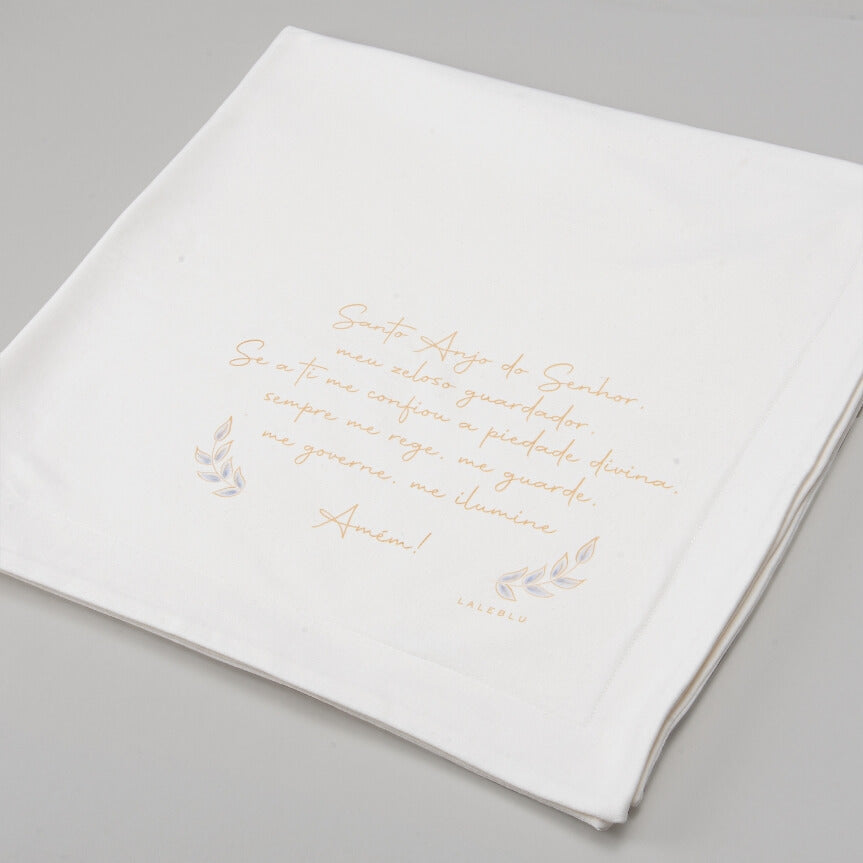 Santo Anjo do Senhor,
meu zeloso guardador,
Se a ti me confiou a piedade divina,
sempre me rege, me guarde,
me governe, me ilumine
Amém!
LALEBLU